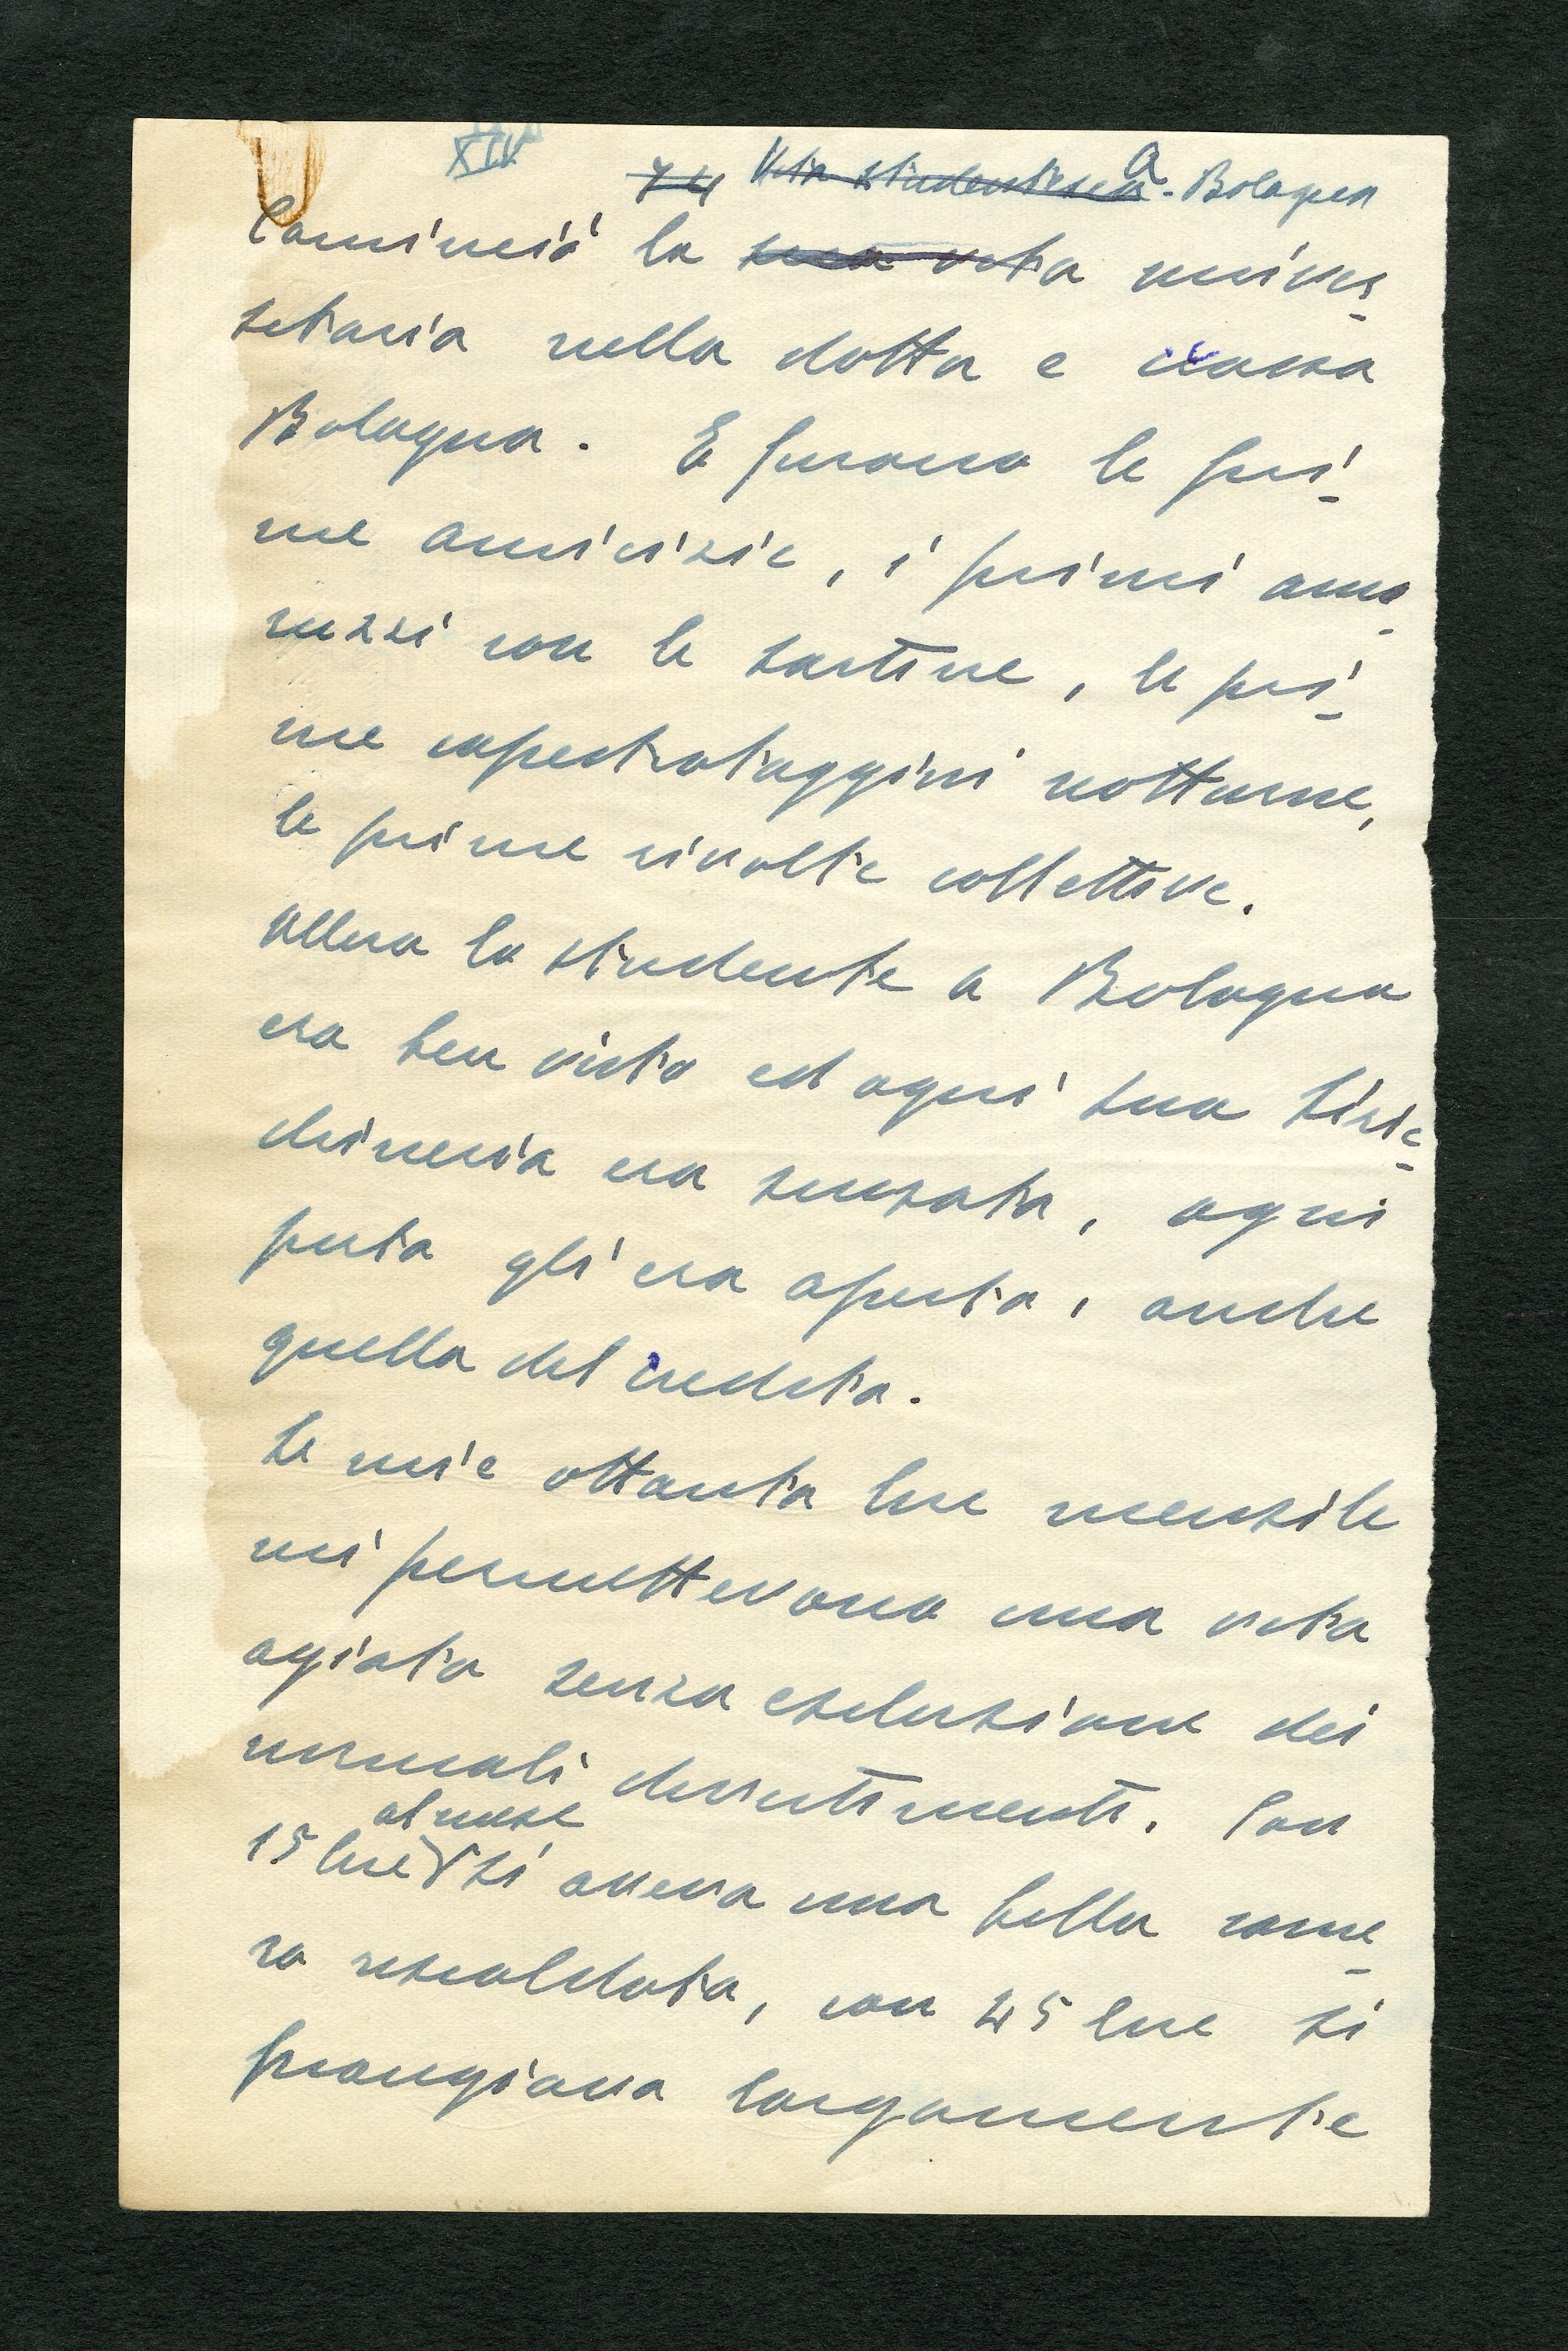 XIV
74 Vita studentesca A - Bologna
Cominciò la sua vita univer-
sitaria nella dotta e crassa
Bologna. E furono le pri-
me amicizie, i primi amo-
ruzzi con le sartine, le pri-
me capestrataggini notturne,
le prime rivolte collettive.
Allora lo studente a Bologna
era ben visto ed ogni sua biric-
chineria era scusata, ogni
porta gli era aperta, anche
quella del credito.
Le mie ottanta lire mensile
mi permettevano una vita
agiata senza esclusione dei
normali divertimenti. Con
al mese
15 lire si aveva una bella came-
ra riscaldata, con 45 lire si
mangiava largamente